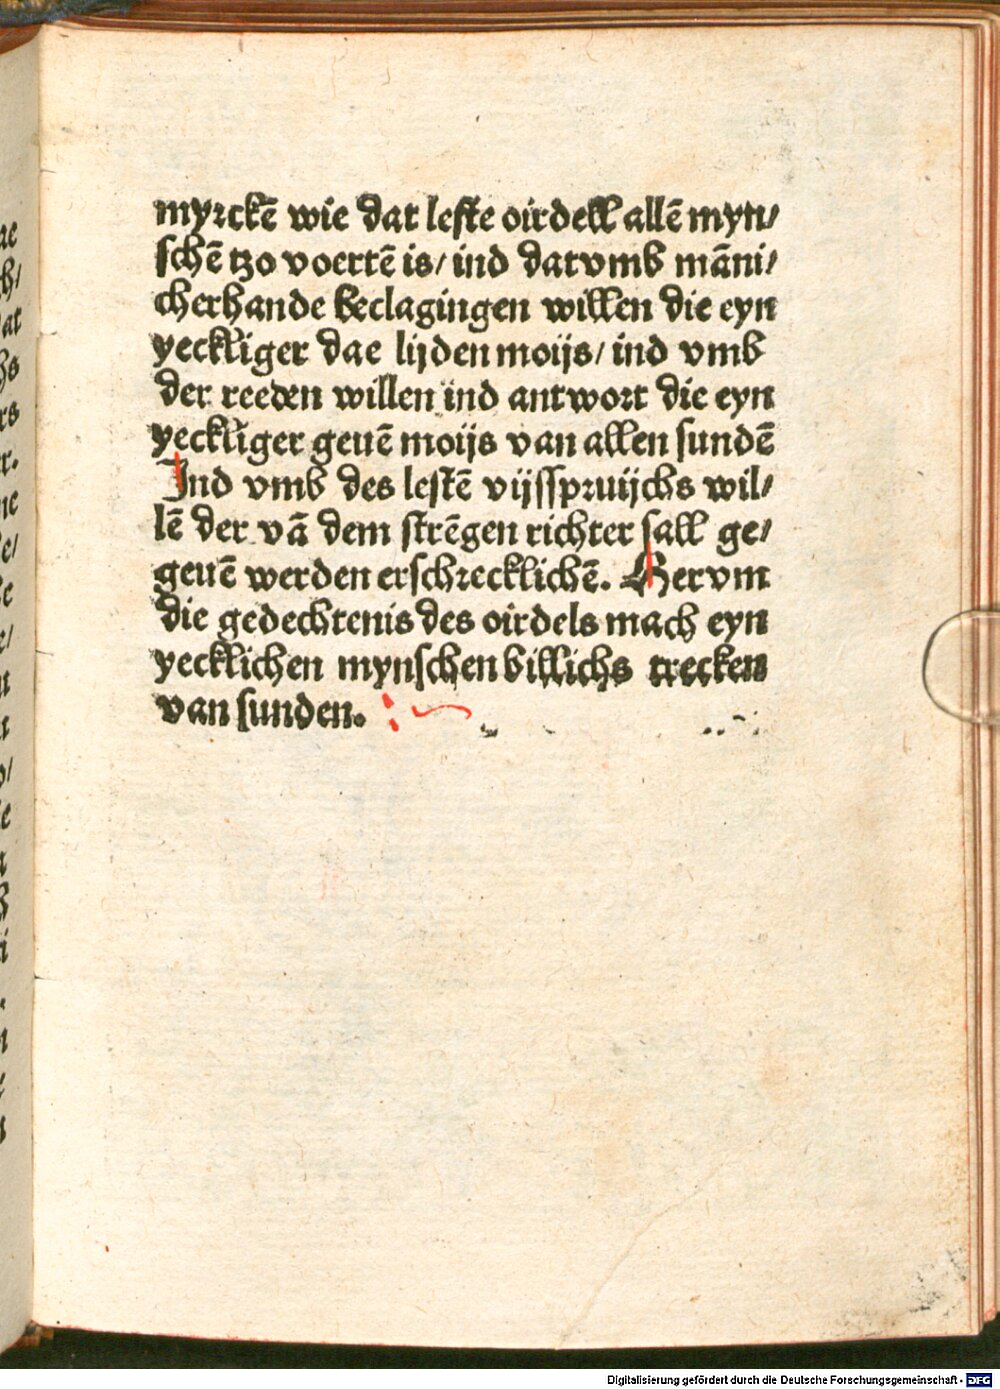 myrckē wie dat leste oirdell allē myn/
schē tzo voertē is/ ind datvmb māni/
cherhande beclagingen willen die eyn
yeckliger dae lijden moijs/ ind vmb
der reeden willen ind antwort die eyn
yeckliger geuē moijs van allen sundē
Ind vmb des lestē vijsspruijchs wil/
lē der vā dem strēgen richter sall ge/
geuē werden erschrecklichē. Hervm
die gedechtenis des oirdels mach eyn
yecklichen mynschen billichs trecken
van sunden.
Digitalisierung gefördert durch die Deutsche Forschungsgemeinschaft - DFG